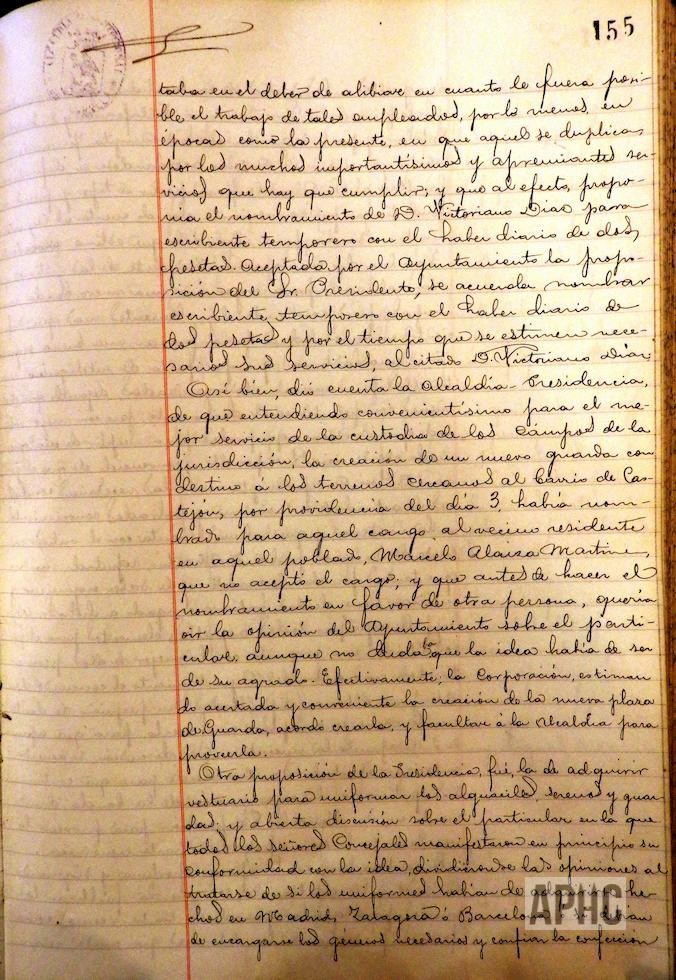 155
taba en el deber de alibiar en cuanto le fuera posi-
ble el trabajo de tales empleados, por lo menos, en
épocas como la presente, en que aquel se duplica,
por los muchos importantísimos y apremiantes ser-
vicios que hay que cumplir; y que al efecto, propo-
nia el nombramiento de D. Victoriano Diaz para
escribiente temporero con el haber diario de dos,
pesetas. Aceptada por el Ayuntamiento la propo-
sición del Sr. Presidente, se acuerda nombrar
escribiente temporero con el haber diario de
dos pesetas y por el tiempo que se estimen nece-
sarios sus servicios, al citado D. Victoriano Díaz.
Así bien, dió cuenta la Alcaldía-Presidencia,
de que entendiendo convenientísimo para el me-
jor servicio de la custodia de los Cámpos de la
jurisdicción, la creación de un nuevo guarda con
destino á los terrenos cercanos al barrio de Cas-
tejón, por providencia del día 3, había nom-
brado para aquel cargo, al vecino residente
en aquel poblado, Marcelo Martinez,
que no aceptó el cargo; y que antes de hacer el
nombramiento en favor de otra persona, quería
oir la opinión del Ayuntamiento sobre el parti-
cular, aunque no dudaba que la idea había de ser
de su agrado. Efectivamente; la Corporación, estiman
do acertada y conveniente la creación de la nueva plaza
de Guarda, acordó crearla, y facultar á la Alcaldia para
proveerla.
Otra proposición de la Presidencia, fué, la de adquirir
vestuario para uniformar los alguaciles, serenos y guar
das; y abierta discusión sobre el particular en la que
todos los señores Concejales manifestaron en principio su
conformidad con la idea, dividiéronse las opiniones al
tratarse de si los uniformes habían de adquirirse he-
chos en Madrid, Zaragoza ó Barcelona ó si debían
de encargarse los géneros necesarios y confiar la confección
APHC